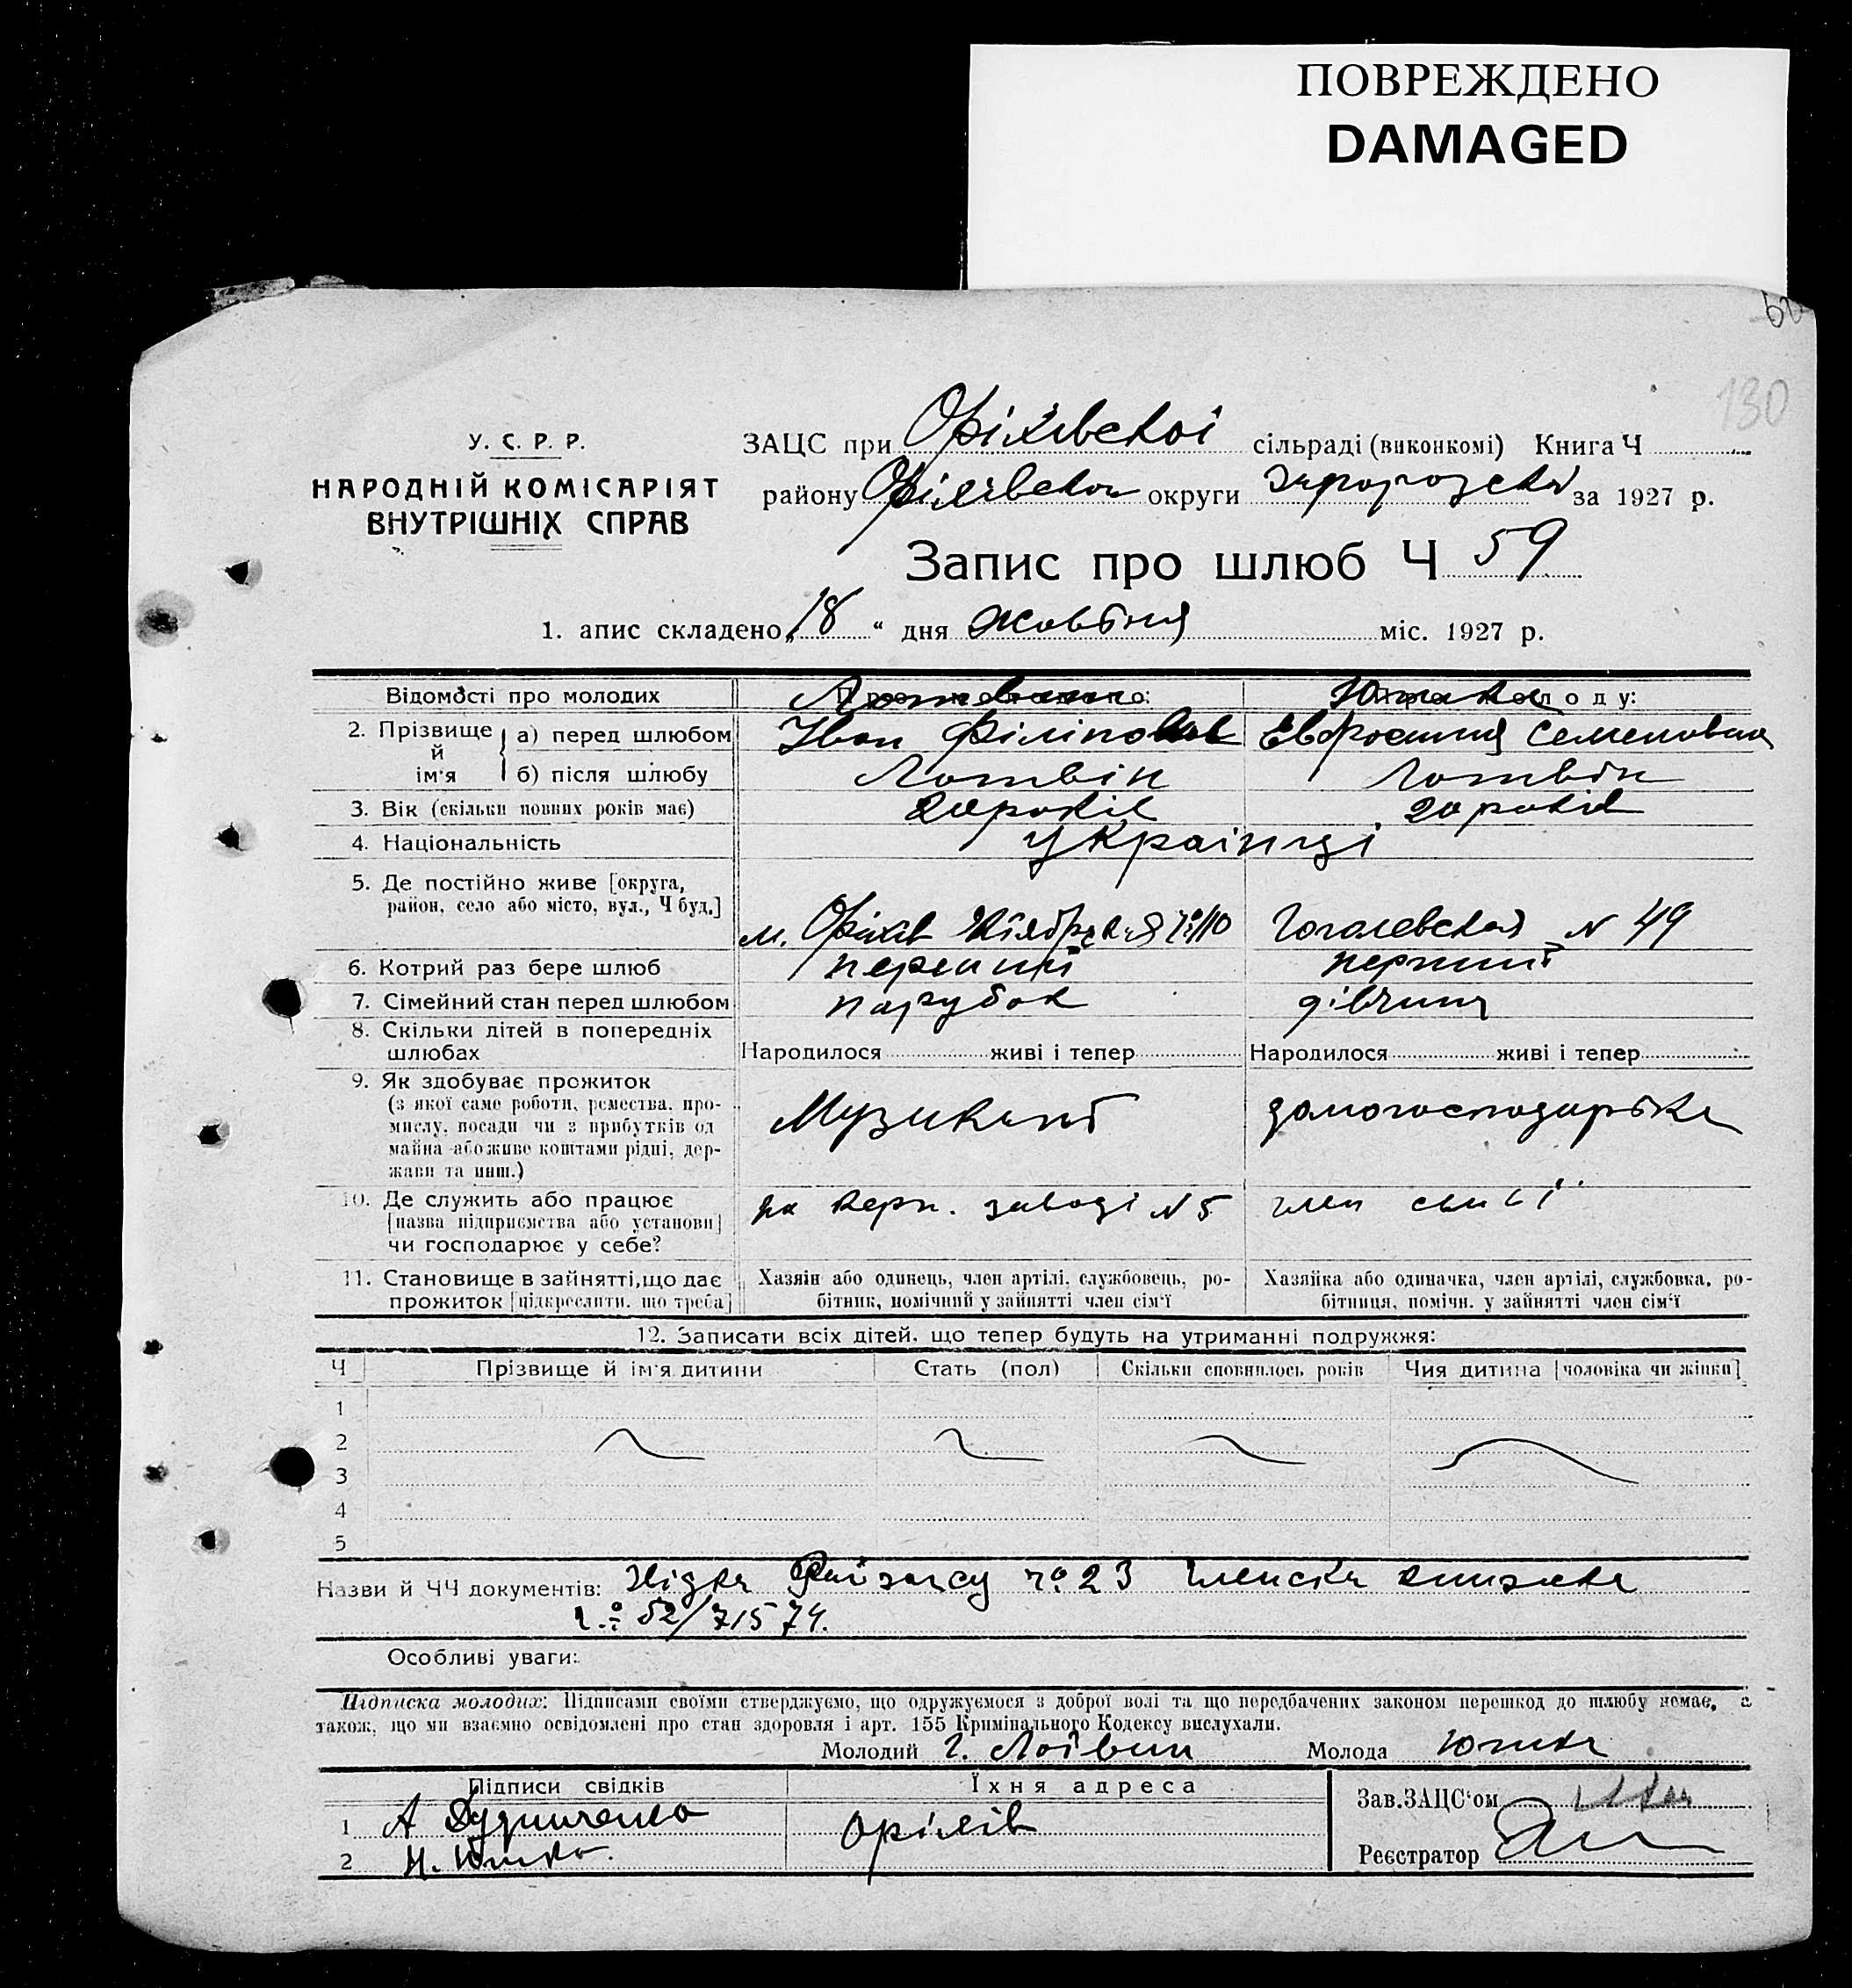 ПОВРЕЖДЕНО
DAMAGED
130
У. С. Р. Р.
НАРОДНІЙ КОМІСАРІЯТ
ВНУТРІШНІХ СПРАВ
ЗАЦС при Оріхівської сільраді (виконкомі) Книга Ч
району Оріхівськ округи Запорозськ за 1927 р.
Запис про шлюб Ч 59
1. апис складено „18“ дня жовтня міс. 1927 р.
Відомості про молодих
2. Прізвище й ім'я а) перед шлюбом Іван Філіпов Евфросинія Семеновна
б) після шлюбу Лотвін Лотвін
3. Вік (скільки повних років має) 20 років 20 років
4. Національність Українці
5. Де постійно живе [округа,
район, село або місто, вул., Ч буд.] м. Оріхів Гоголевская N 49
6. Котрий раз бере шлюб перший перший
7. Сімейний стан перед шлюбом парубок дівчина
8. Скільки дітей в попередніх
шлюбах Народилося живі і тепер Народилося живі і тепер
9. Як здобуває прожиток
(з якої саме роботи, ремества, про-
мислу, посади чи з прибутків од
майна або живе коштами рідні, дер-
жави та инш.) Музикант домогосподарка
10. Де служить або працює
[назва підприємства або установи]
чи господарює у себе? на керп. заводі N 5 член сім'ї
11. Становище в зайнятті, що дає
прожиток [підкреслити. що треба]
Хазяїн або одинець, член артілі, службовець, ро-
бітник, помічний у зайнятті член сім'ї
Хазяйка або одиначка, член артілі, службовка, ро-
бітниця, помічн. у зайнятті член сім'ї
12. Записати всіх дітей, що тепер будуть на утриманні подружжя:
Ч Прізвище й ім'я дитини Стать (пол) Скільки сповнилось років Чия дитина [чоловіка чи жінки]
1
2
3
4
5
Назви й ЧЧ документів: № 23 Членска книжка
52/71574.
Особливі уваги:
Підписка молодих: Підписами своїми стверджуємо, що одружуємося з доброї волі та що передбачених законом перешкод до шлюбу немає, а
також, що ми взаємно освідомлені про стан здоровля і арт. 155 Кримінального Кодексу вислухали.
Молодий Лотвин Молода Юшка
Підписи свідків Їхня адреса
Зав. ЗАЦС'ом
1 А Оріхів
2 Н. Юшко.
Реєстратор